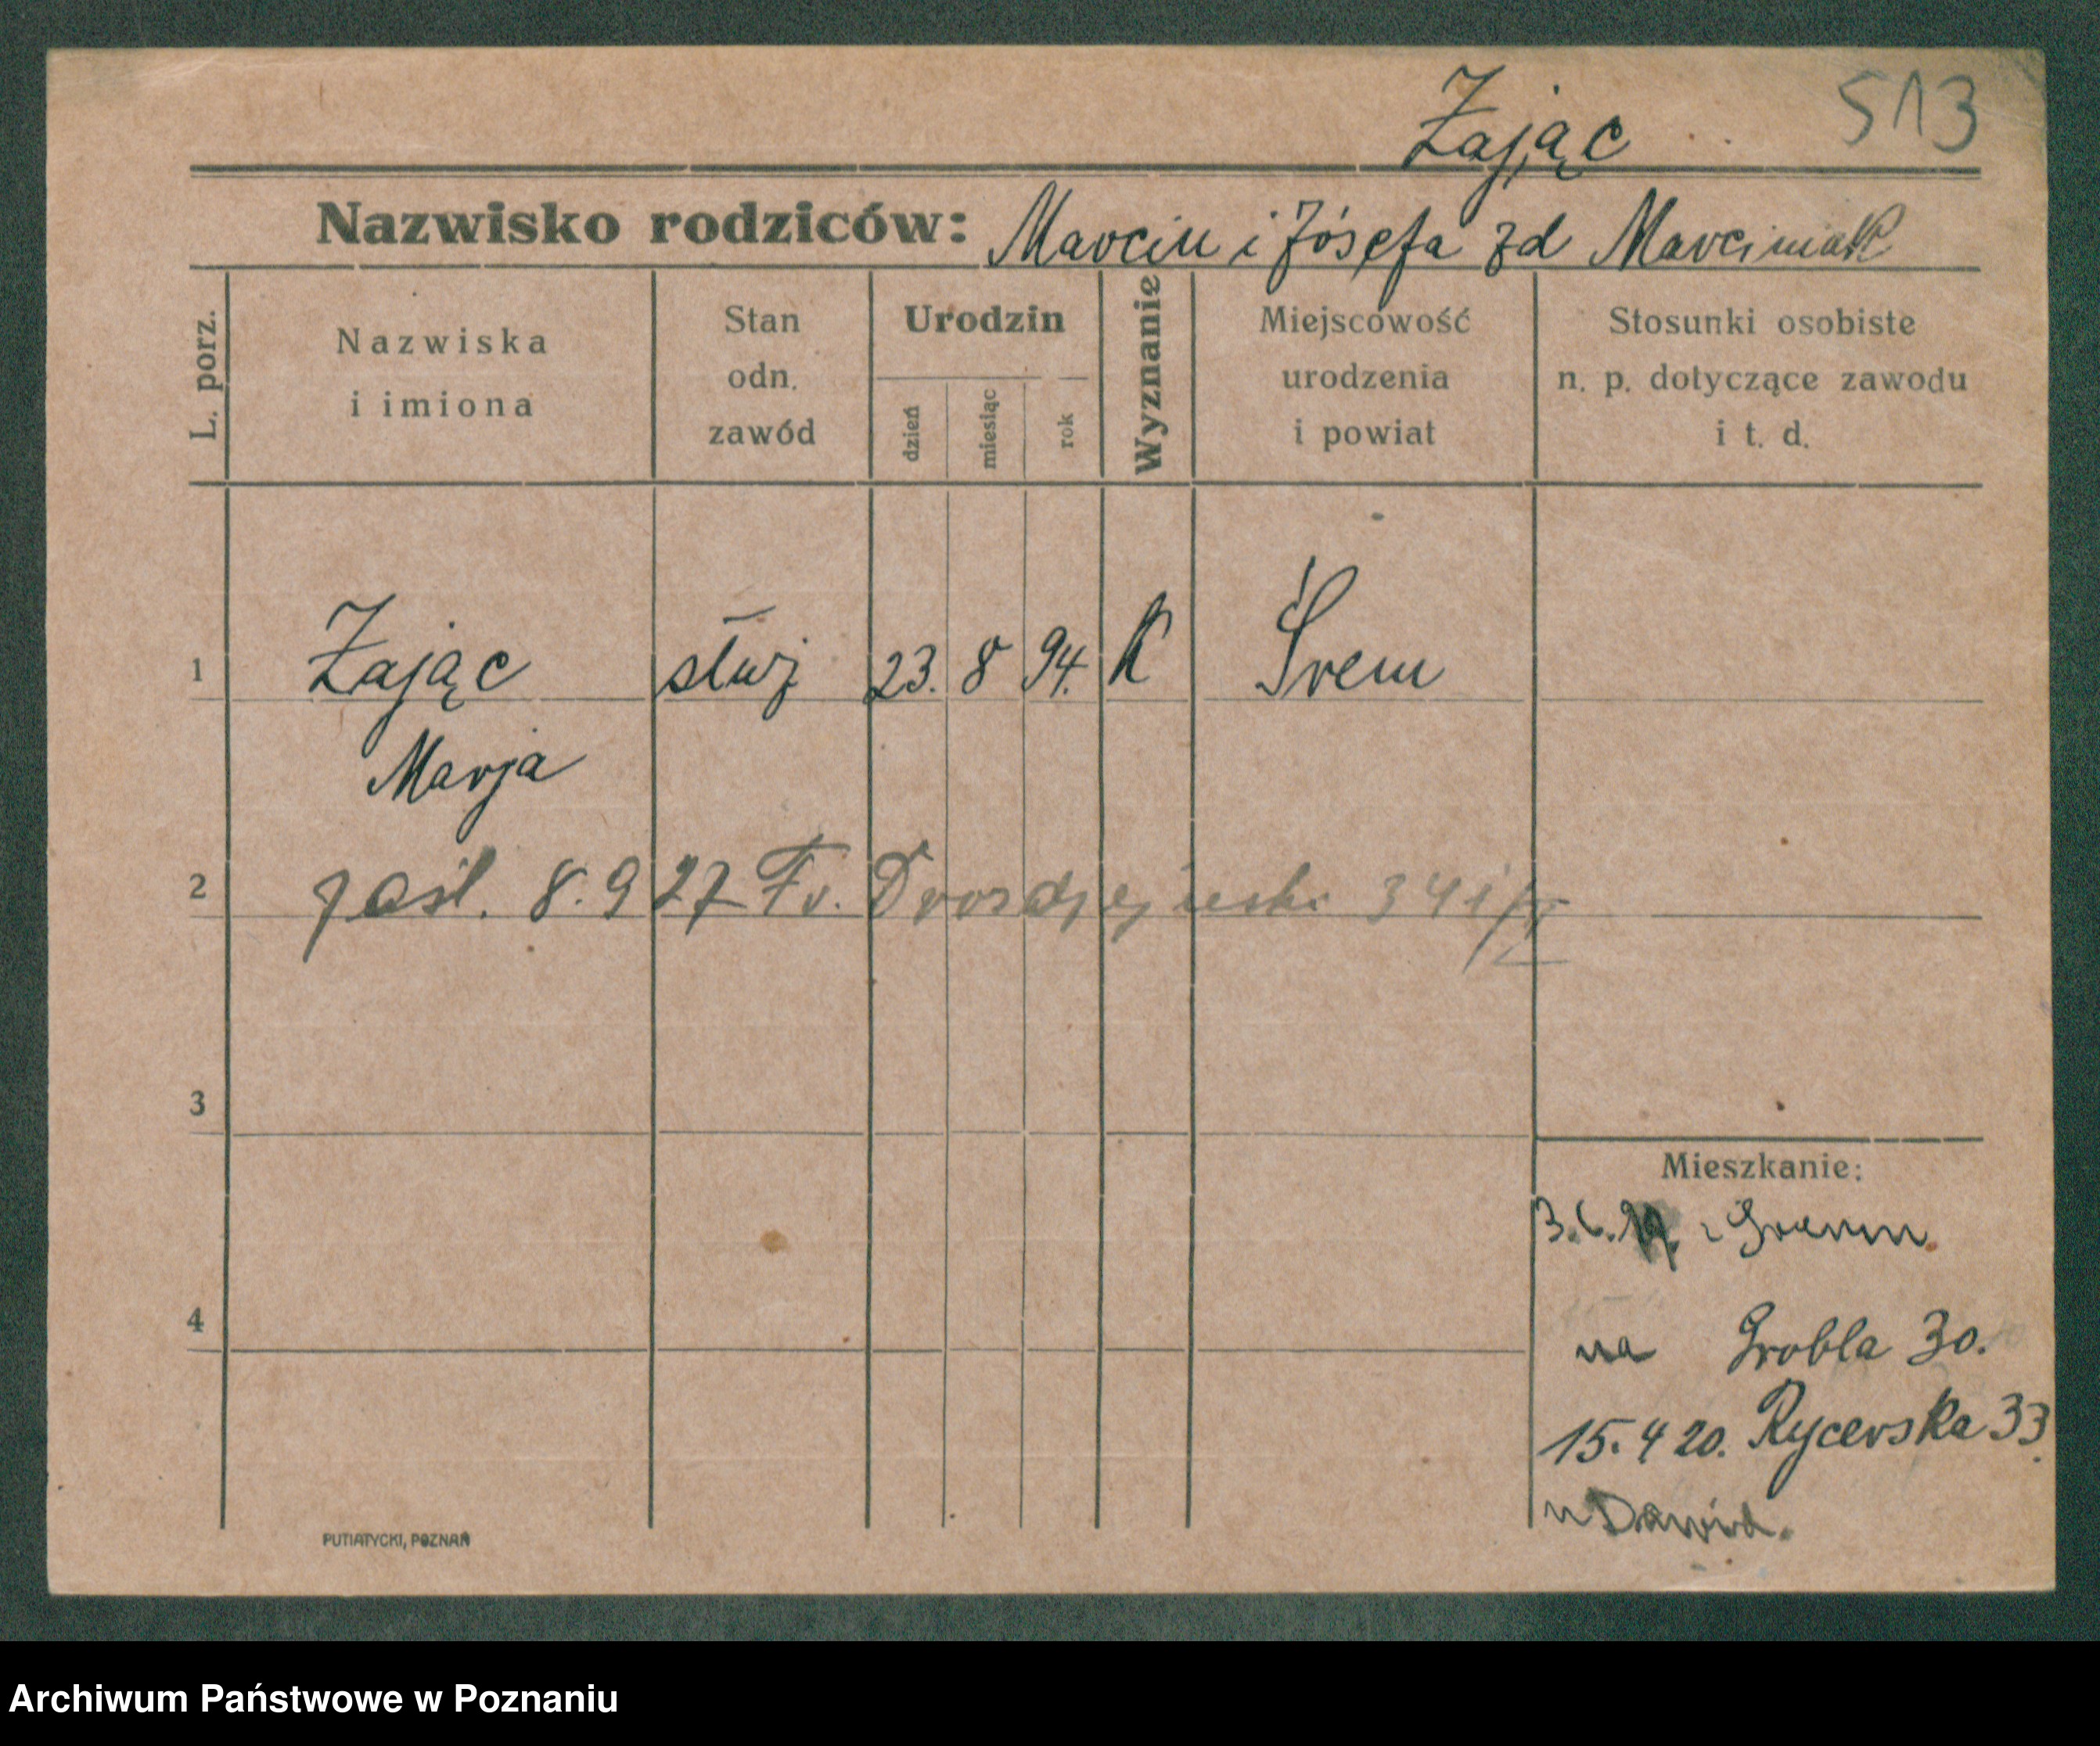 Zając 513
Nazwisko rodziców: Marcin i Józefa zd Marciniak
L. porz.
Nazwiska
i imiona
Stan
odn.
zawód
Urodzin
dzień
miesiąc
rok
Wyznanie
Miejscowość
urodzenia
i powiat
Stosunki osobiste
n. p. dotyczące zawodu
i t. d.
1 Zając służ 23. 8 94. K Śrem
Marja
2 zaśl. 8.9 27 Fr.
3
Mieszkanie:
3.6.
4
na Grobla 30.
15.4 20. Rycerska 33.
u Dawid.
PUTIATYCKI, POZNAŃ
Archiwum Państwowe w Poznaniu